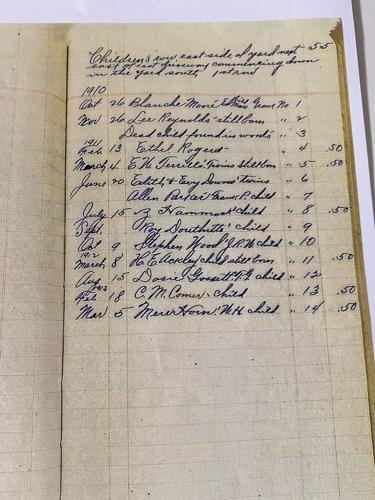 Children's row, east side of yard next 55
east of east driveway commencing down
in the yard south, 1st row
1910
Oct 26 Blanche Moore Grave No 1
Nov 26 Lee Reynolds still born " 2
Dead child found in woods " 3
1911
Feb 13 Ethel Rogers " 4 .50
March 4 E. W. Terrill's Twins still born " 5 .50
June 20 Edith & Evy Downs' twins " 6
Allen Parker child " 7
July 15 Hammock child " 8 .50
Sept. Roy Douthitt's child " 9
Oct 9 Stephen Wood child " 10
1912
March 8 H. E. Ackley child still born " 11 .50
Aug 15 Dosie Gossett child " 12
1913
Feb 18 C. M. Comer child " 13 .50
Mar 5 Horn child " 14 .50